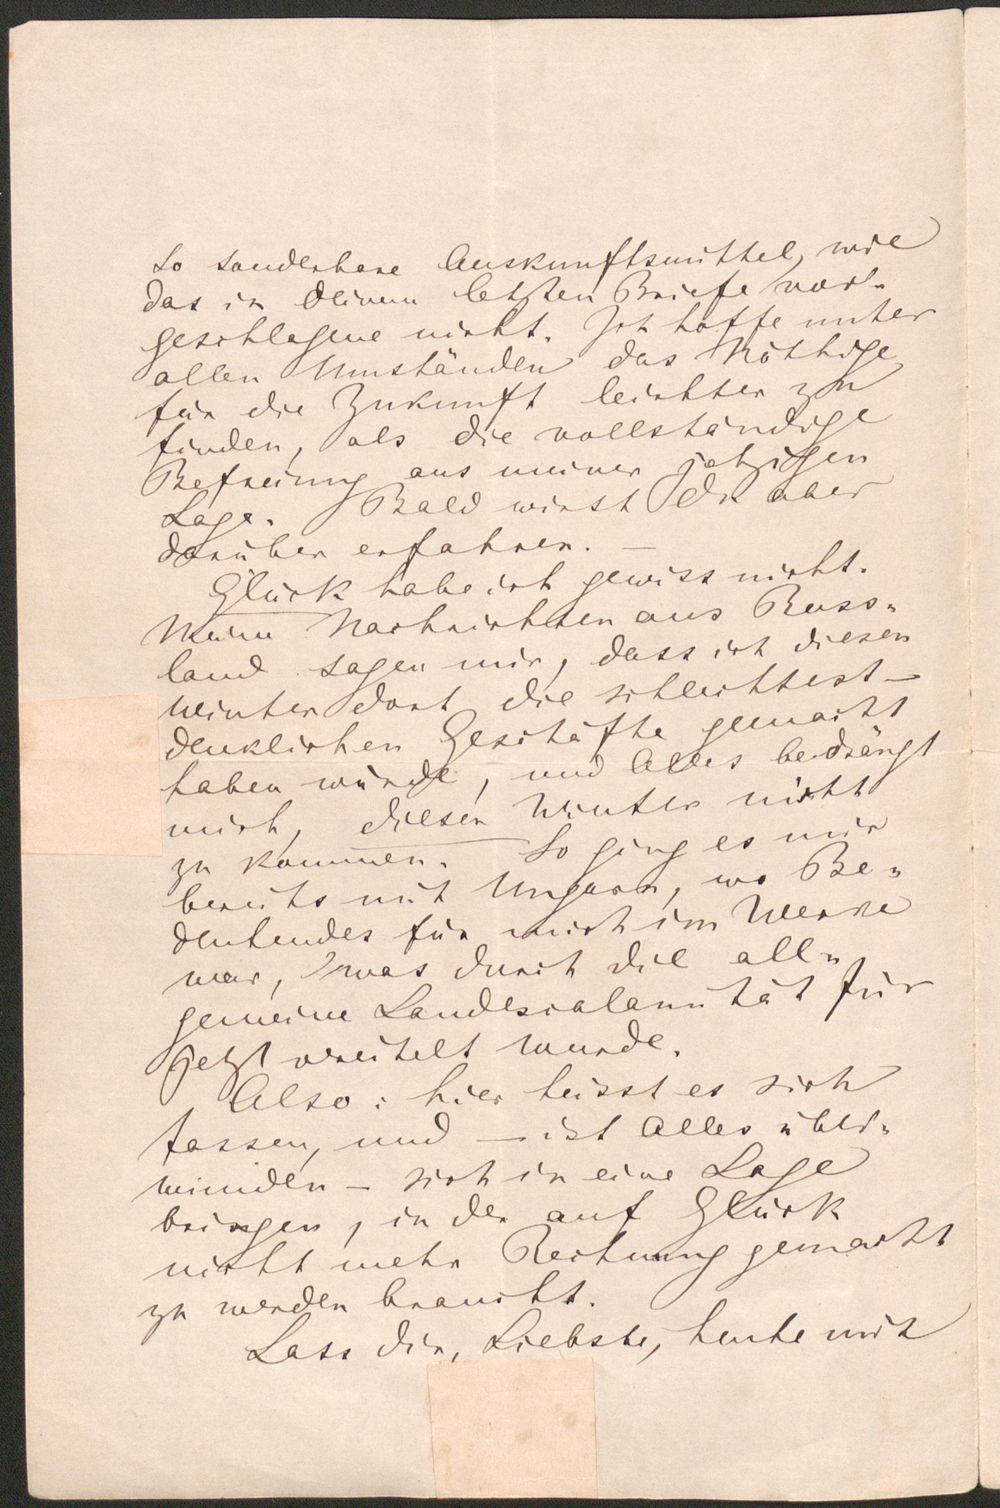 so sonderbare Auskunftsmittel, wie
das in deinem letzten Briefe vor-
geschlagene nicht. Ich hoffe unter
allen Umständen das Nöthige
für die Zukunft leichter zu
finden, als die vollständige
Befreiung aus meiner jetzigen
Lage. Bald wirst du aber
darüber erfahren. —
Glück habe ich gewiss nicht.
Meine Nachrichten aus Russ-
land sagen mir, dass ich diesen
Winter dort die schlechtest-
denklichen Geschäfte gemacht
haben würde, und Alles bedrängt
mich, diesen Winter nicht
zu kommen. So ging es mir
bereits mit Ungarn, wo Be-
deutendes für mich im Werke
war, was durch die all-
gemeine Landescalamität für
jetzt vereitelt wurde.
Also: hier heisst es sich
fassen, und — ist Alles über-
wunden — sich in eine Lage
bringen, in der auf Glück
nicht mehr Rechnung gemacht
zu werden braucht.
Lass dir, Liebste, heute mit